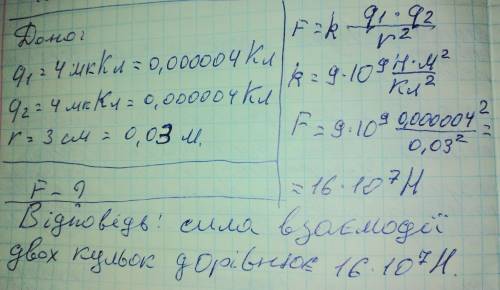 Дано:
q₁ = 4 мкКл = 0,000004 Кл
q₂ = 4 мкКл = 0,000004 Кл
r = 3 см = 0,03 м.
F - ?
F = k q₁ · q₂ / r²
k = 9·10⁹ Н·м² / Кл²
F = 9·10⁹ 0,000004² / 0,03² =
= 16·10⁷ Н
Відповідь: сила взаємодії
двох кульок дорівнює 16·10⁷ Н.